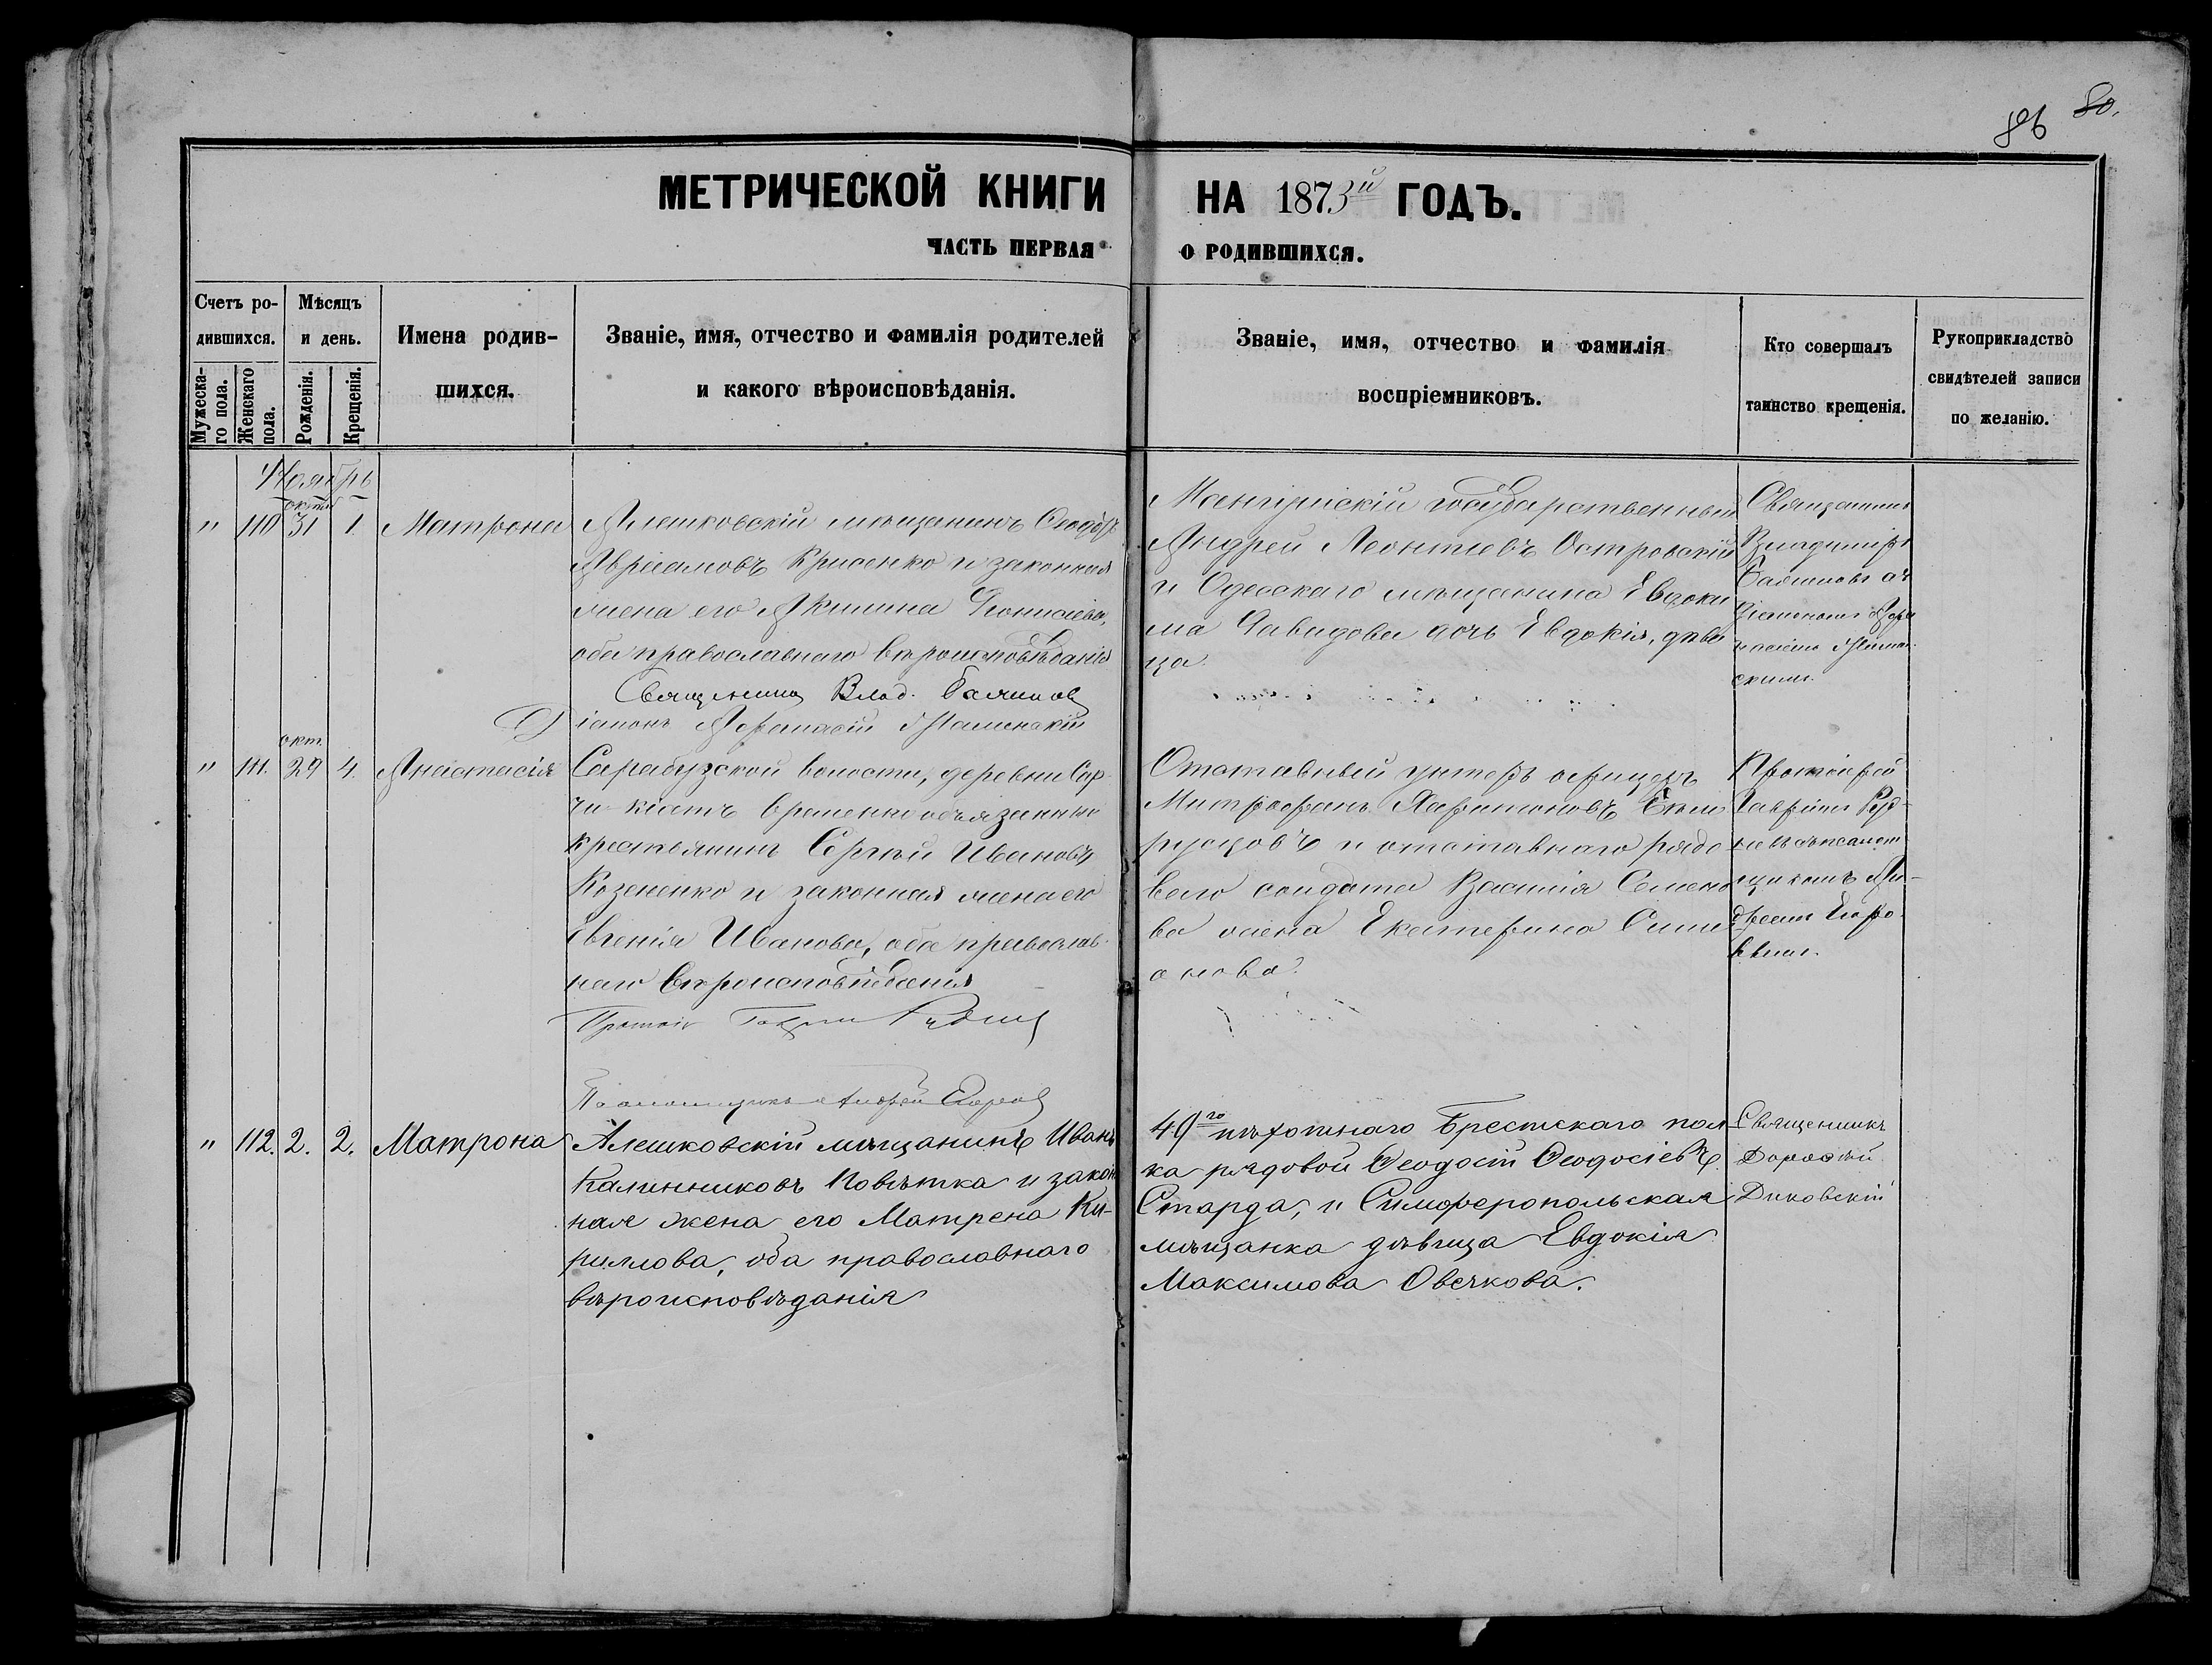 86 80.
МЕТРИЧЕСКОЙ КНИГИ НА 1873й ГОДЪ.
ЧАСТЬ ПЕРВАЯ О РОДИВШИХСЯ.
Счетъ ро-
дившихся.
Мужеска-
го пола.
Женскаго
пола.
Мѣсяцъ
и день.
Рожденія.
Крещенія.
Имена родив-
шихся.
Званіе, имя, отчество и фамилія родителей
и какого вѣроисповѣданія.
Званіе, имя, отчество и фамилія
воспріемниковъ.
Кто совершалъ
таинство крещенія.
Рукоприкладство
свидѣтелей записи
по желанію.
Ноябрь
" 110 окт. 31 1. Матрона
Алешковскій мѣщанинъ
Крисенко и законная
жена его Акилина
оба православнаго вѣроисповѣданія
Священникъ Влад. Баляновъ
Діаконъ Афанасій
государственный
Андрей Леонтьевъ Островскій
и Одесскаго мѣщанина Евдоки
ма Давидова дочь Евдокія, дѣви
ца.
Священникъ
Владиміръ
Баляновъ съ
Діакономъ Афа
насіемъ
скимъ.
" 111. окт. 29 4. Анастасія
Сарабузской волости, деревни Сар
чи-кіятъ временно обязанный
крестьянинъ Сергѣй Ивановъ
Козененко и законная жена его
Евгенія Иванова, оба православ-
наго вѣроисповѣданія
Андрей
Отставный унтеръ офицеръ
Митрофанъ Харитоновъ Бѣло
русцовъ и отставнаго рядо
ваго солдата Василія Семено
ва жена Екатерина Сими
онова.
Протоіерей
Гавріилъ Руд-
невъ съ псалом
щикомъ Ан-
дреемъ
" 112. 2. 2. Матрона
Алешковскій мѣщанинъ Иванъ
Калинниковъ Повѣтка и закон
ная жена его Матрена Ки-
риллова, оба православнаго
вѣроисповѣданія
49го пѣхотнаго Брестскаго пол
ка рядовой Ѳеодосій Ѳеодосіевъ
Старда, и Симферопольская
мѣщанка дѣвица Евдокія
Максимова Овечкова.
Священникъ
Дорофѣй
Диковскій